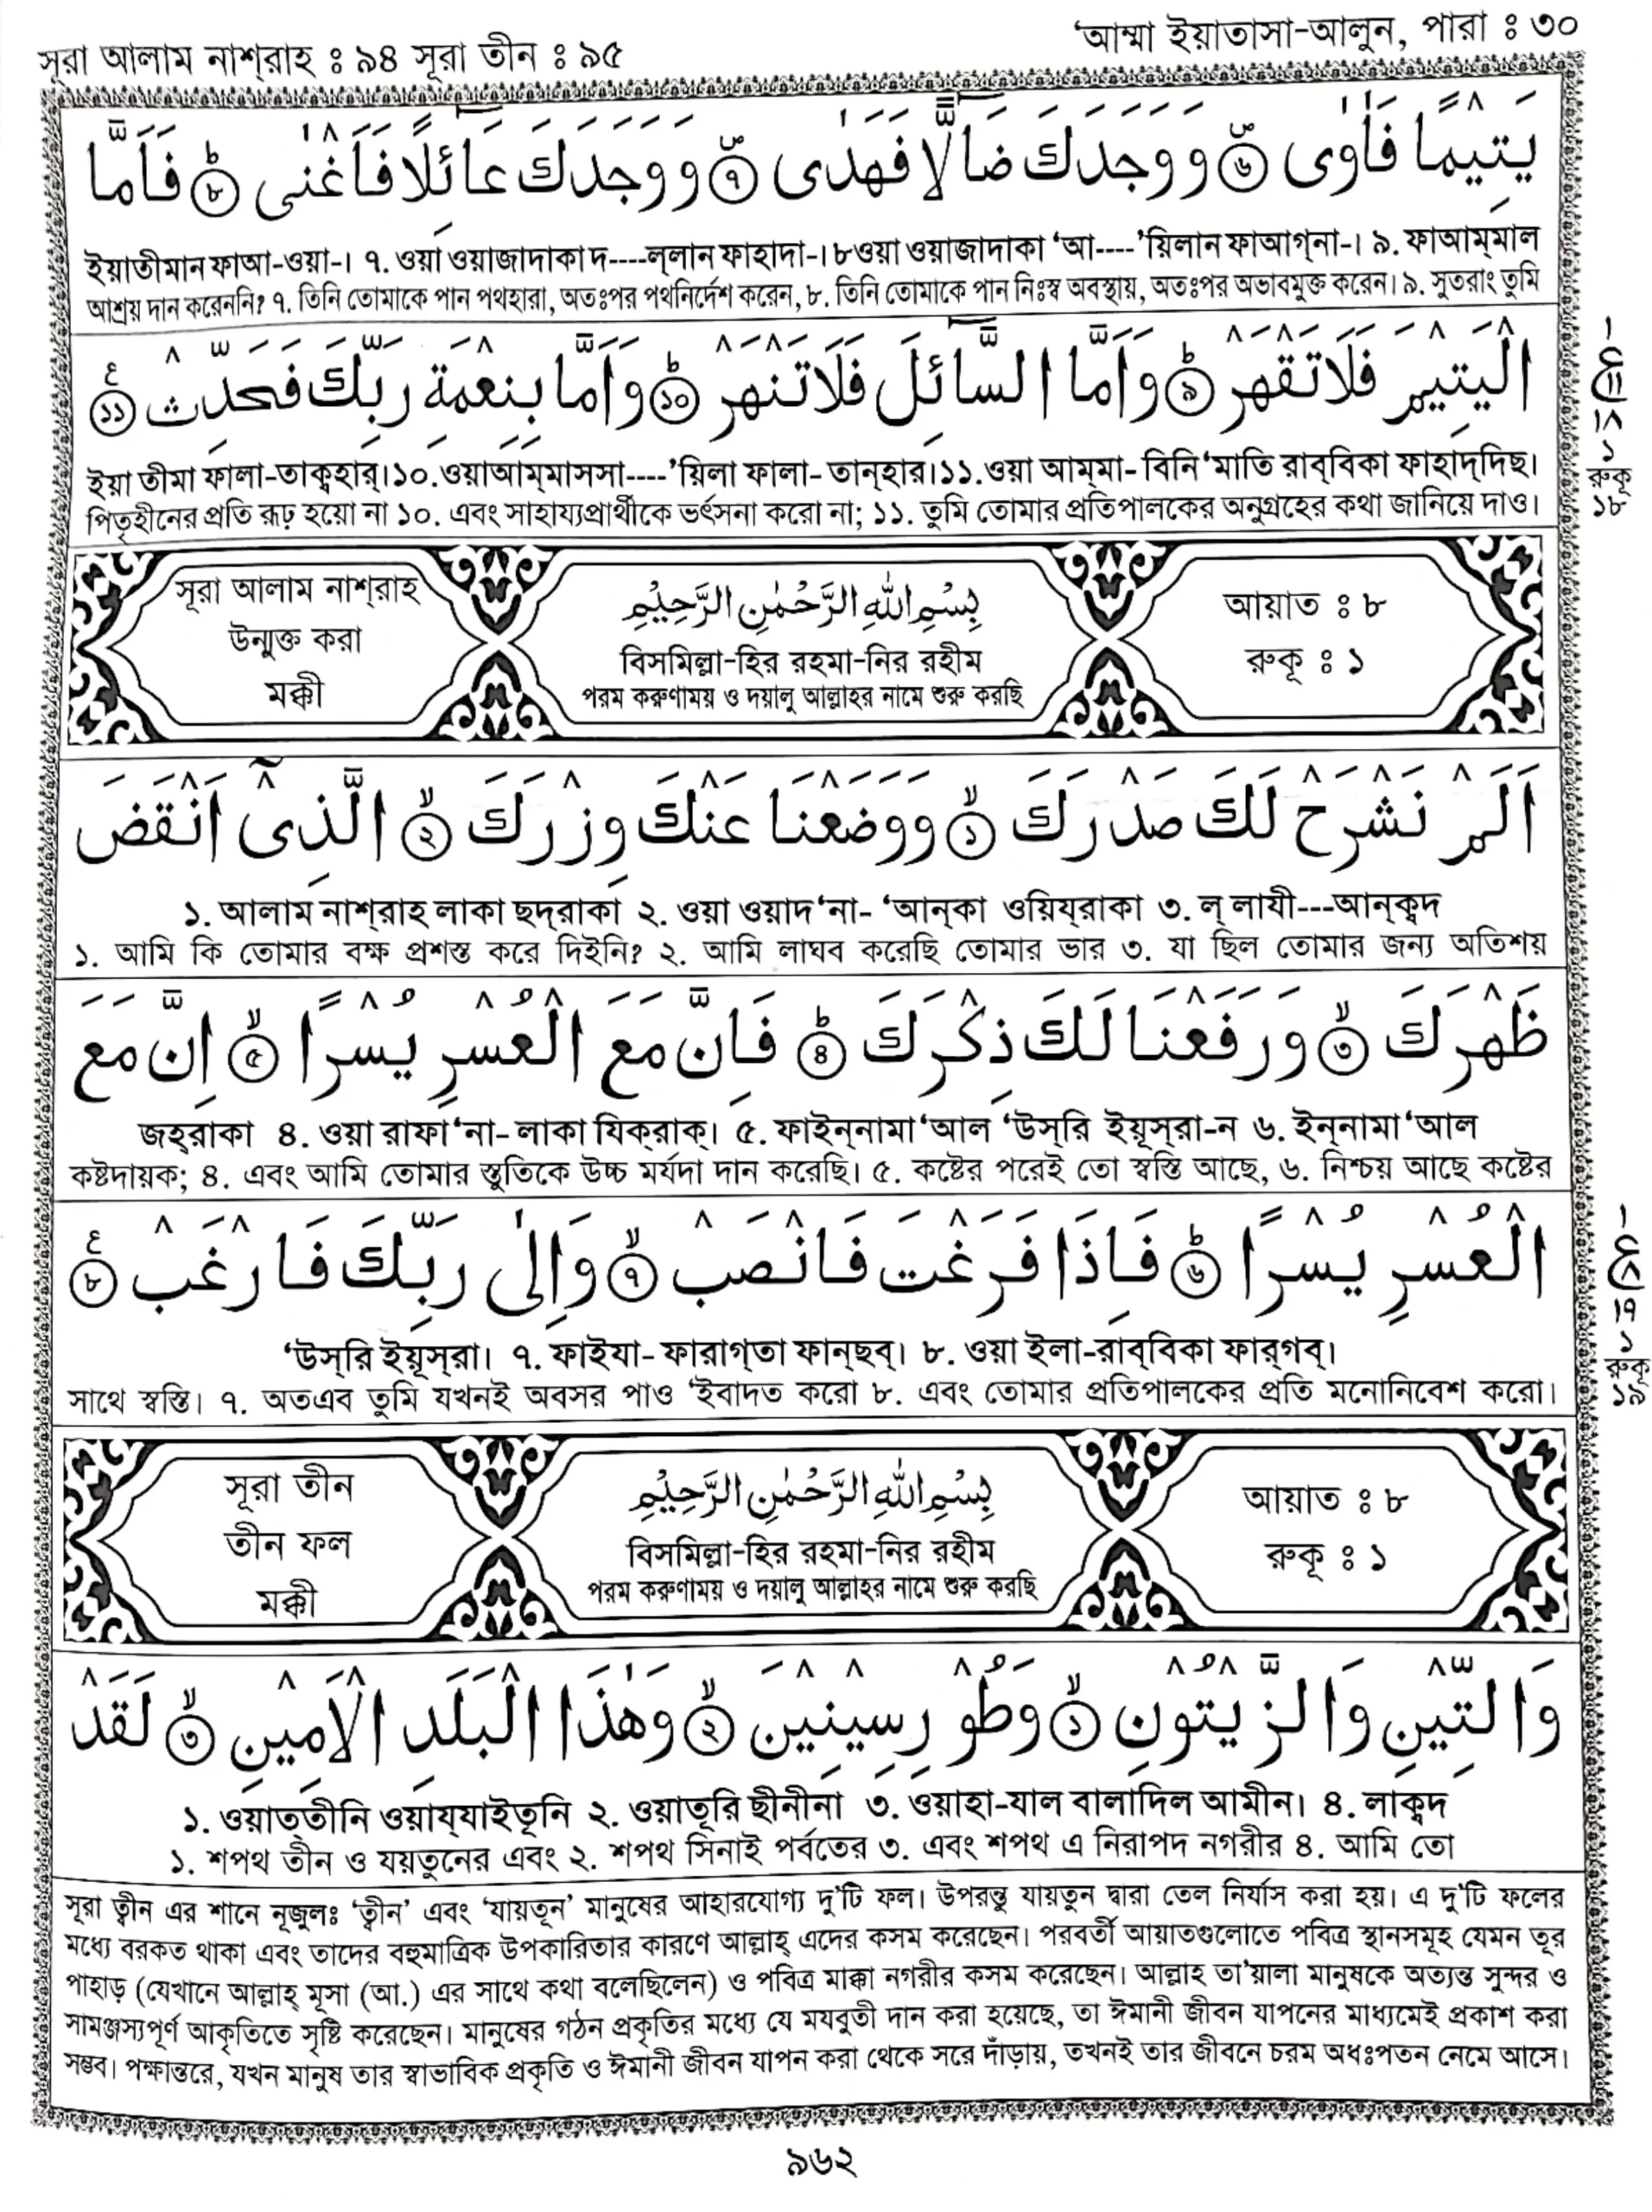 সূরা আলাম নাশ্‌রাহ ঃ ৯৪ সূরা তীন ঃ ৯৫
‘আম্মা ইয়াতাসা-আলুন, পারা ঃ ৩০
يَتِيْمًا فَاٰوٰى ۝٦ وَوَجَدَكَ ضَآلًّا فَهَدٰى ۝٧ وَوَجَدَكَ عَآئِلًا فَاَغْنٰى ۝٨ فَاَمَّا
ইয়াতীমান ফাআ-ওয়া-। ৭. ওয়া ওয়াজাদাকা দ----ল্‌লান ফাহাদা-। ৮ওয়া ওয়াজাদাকা ‘আ----’য়িলান ফাআগ্‌না-। ৯. ফাআম্‌মাল
আশ্রয় দান করেননি? ৭. তিনি তোমাকে পান পথহারা, অতঃপর পথনির্দেশ করেন, ৮. তিনি তোমাকে পান নিঃস্ব অবস্থায়, অতঃপর অভাবমুক্ত করেন। ৯. সুতরাং তুমি
الْيَتِيْمَ فَلَا تَقْهَرْ ۝٩ وَاَمَّا السَّآئِلَ فَلَا تَنْهَرْ ۝١٠ وَاَمَّا بِنِعْمَةِ رَبِّكَ فَحَدِّثْ ۝١١
ইয়া তীমা ফালা-তাক্বহার্। ১০.ওয়াআম্‌মাসসা----’য়িলা ফালা- তান্‌হার। ১১.ওয়া আম্‌মা- বিনি‘মাতি রাব্‌বিকা ফাহাদ্‌দিছ।
পিতৃহীনের প্রতি রূঢ় হয়ো না ১০. এবং সাহায্যপ্রার্থীকে ভর্ৎসনা করো না; ১১. তুমি তোমার প্রতিপালকের অনুগ্রহের কথা জানিয়ে দাও।
ع
١١
١٨
১
রুকূ
১৮
সূরা আলাম নাশ্‌রাহ
উন্মুক্ত করা
মক্কী
بِسْمِ اللّٰهِ الرَّحْمٰنِ الرَّحِيْمِ
বিসমিল্লা-হির রহমা-নির রহীম
পরম করুণাময় ও দয়ালু আল্লাহর নামে শুরু করছি
আয়াত ঃ ৮
রুকূ ঃ ১
اَلَمْ نَشْرَحْ لَكَ صَدْرَكَ ۝١ وَوَضَعْنَا عَنْكَ وِزْرَكَ ۝٢ الَّذِىْٓ اَنْقَضَ
১. আলাম নাশ্‌রাহ লাকা ছদ্‌রাকা ২. ওয়া ওয়াদ‘না- ‘আন্‌কা ওয়িয্‌রাকা ৩. ল্ লাযী---আন্‌ক্বদ
১. আমি কি তোমার বক্ষ প্রশস্ত করে দিইনি? ২. আমি লাঘব করেছি তোমার ভার ৩. যা ছিল তোমার জন্য অতিশয়
ظَهْرَكَ ۝٣ وَرَفَعْنَا لَكَ ذِكْرَكَ ۝٤ فَاِنَّ مَعَ الْعُسْرِ يُسْرًا ۝٥ اِنَّ مَعَ
জহ্‌রাকা ৪. ওয়া রাফা‘না- লাকা যিক্‌রাক্। ৫. ফাইন্‌নামা‘আল ‘উস্‌রি ইয়ূস্‌রা-ন ৬. ইন্‌নামা‘আল
কষ্টদায়ক; ৪. এবং আমি তোমার স্তুতিকে উচ্চ মর্যদা দান করেছি। ৫. কষ্টের পরেই তো স্বস্তি আছে, ৬. নিশ্চয় আছে কষ্টের
الْعُسْرِ يُسْرًا ۝٦ فَاِذَا فَرَغْتَ فَانْصَبْ ۝٧ وَاِلٰى رَبِّكَ فَارْغَبْ ۝٨
‘উস্‌রি ইয়ূস্‌রা। ৭. ফাইযা- ফারাগ্‌তা ফান্‌ছব্। ৮. ওয়া ইলা-রাব্‌বিকা ফার্‌গব্।
সাথে স্বস্তি। ৭. অতএব তুমি যখনই অবসর পাও ‘ইবাদত করো ৮. এবং তোমার প্রতিপালকের প্রতি মনোনিবেশ করো।
ع
٨
١٩
১
রুকূ
১৯
সূরা তীন
তীন ফল
মক্কী
بِسْمِ اللّٰهِ الرَّحْمٰنِ الرَّحِيْمِ
বিসমিল্লা-হির রহমা-নির রহীম
পরম করুণাময় ও দয়ালু আল্লাহর নামে শুরু করছি
আয়াত ঃ ৮
রুকূ ঃ ১
وَالتِّيْنِ وَالزَّيْتُوْنِ ۝١ وَطُوْرِ سِيْنِيْنَ ۝٢ وَهٰذَا الْبَلَدِ الْاَمِيْنِ ۝٣ لَقَدْ
১. ওয়াত্‌তীনি ওয়ায্‌যাইতূনি ২. ওয়াতূরি ছীনীনা ৩. ওয়াহা-যাল বালাদিল আমীন। ৪. লাক্বদ
১. শপথ তীন ও যয়তুনের এবং ২. শপথ সিনাই পর্বতের ৩. এবং শপথ এ নিরাপদ নগরীর ৪. আমি তো
সূরা ত্বীন এর শানে নূজুলঃ ‘ত্বীন’ এবং ‘যায়তূন’ মানুষের আহারযোগ্য দু’টি ফল। উপরন্তু যায়তুন দ্বারা তেল নির্যাস করা হয়। এ দু’টি ফলের
মধ্যে বরকত থাকা এবং তাদের বহুমাত্রিক উপকারিতার কারণে আল্লাহ্ এদের কসম করেছেন। পরবর্তী আয়াতগুলোতে পবিত্র স্থানসমূহ যেমন তূর
পাহাড় (যেখানে আল্লাহ্ মূসা (আ.) এর সাথে কথা বলেছিলেন) ও পবিত্র মাক্কা নগরীর কসম করেছেন। আল্লাহ তা’য়ালা মানুষকে অত্যন্ত সুন্দর ও
সামঞ্জস্যপূর্ণ আকৃতিতে সৃষ্টি করেছেন। মানুষের গঠন প্রকৃতির মধ্যে যে মযবুতী দান করা হয়েছে, তা ঈমানী জীবন যাপনের মাধ্যমেই প্রকাশ করা
সম্ভব। পক্ষান্তরে, যখন মানুষ তার স্বাভাবিক প্রকৃতি ও ঈমানী জীবন যাপন করা থেকে সরে দাঁড়ায়, তখনই তার জীবনে চরম অধঃপতন নেমে আসে।
৯৬২